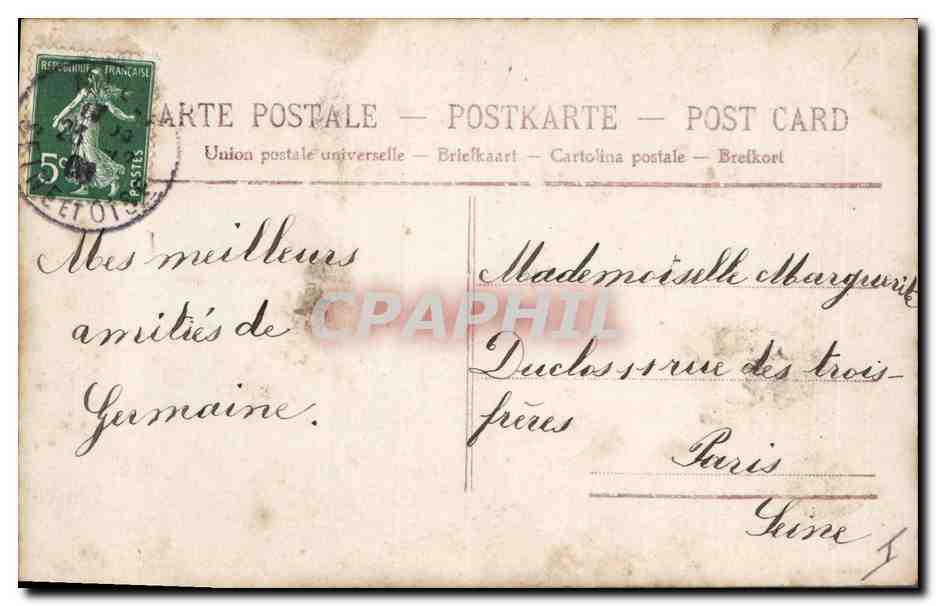 REPUBLIQUE FRANÇAISE
5c
POSTES
ET OISE
CARTE POSTALE — POSTKARTE — POST CARD
Union postale universelle — Briefkaart — Cartolina postale — Brefkort
Mes meilleurs
amitiés de
Germaine.
Mademoiselle Marguerite
Duclos 11 rue des trois-
frères
Paris
Seine
CPAPHIL